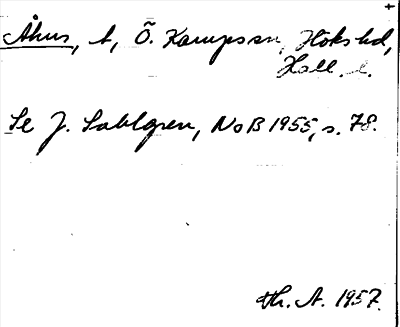 Åhus, b, Ö. Karups sn, Höks hd,
Hall. l.
Se J. Sahlgren, NoB 1955, s. 78.
Th. A. 1957.